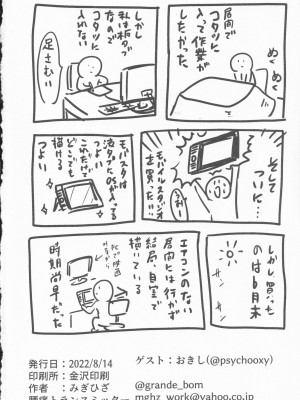 居間で
コタツに
入って作業が
したかった。
ぬくぬく
しかし
私は板タブ
なので
コタツに
入れない
足さむい
そして
ついに…
モバイルスタジオ
を買った!!
モバスタは
液タブにOSが入ってる
つよい
これだけで
どこでも
描ける
つよい
しかし買った
のは6月末
エアコンのない
居間には行かず
結局自室で
描いている
時期尚早だった
発行日:2022/8/14
印刷所:金沢印刷
作者 :みぎひざ
腰痛トランスミッター
ゲスト:おきし(@psychooxy)
@grande_bom
mghz_work@yahoo.co